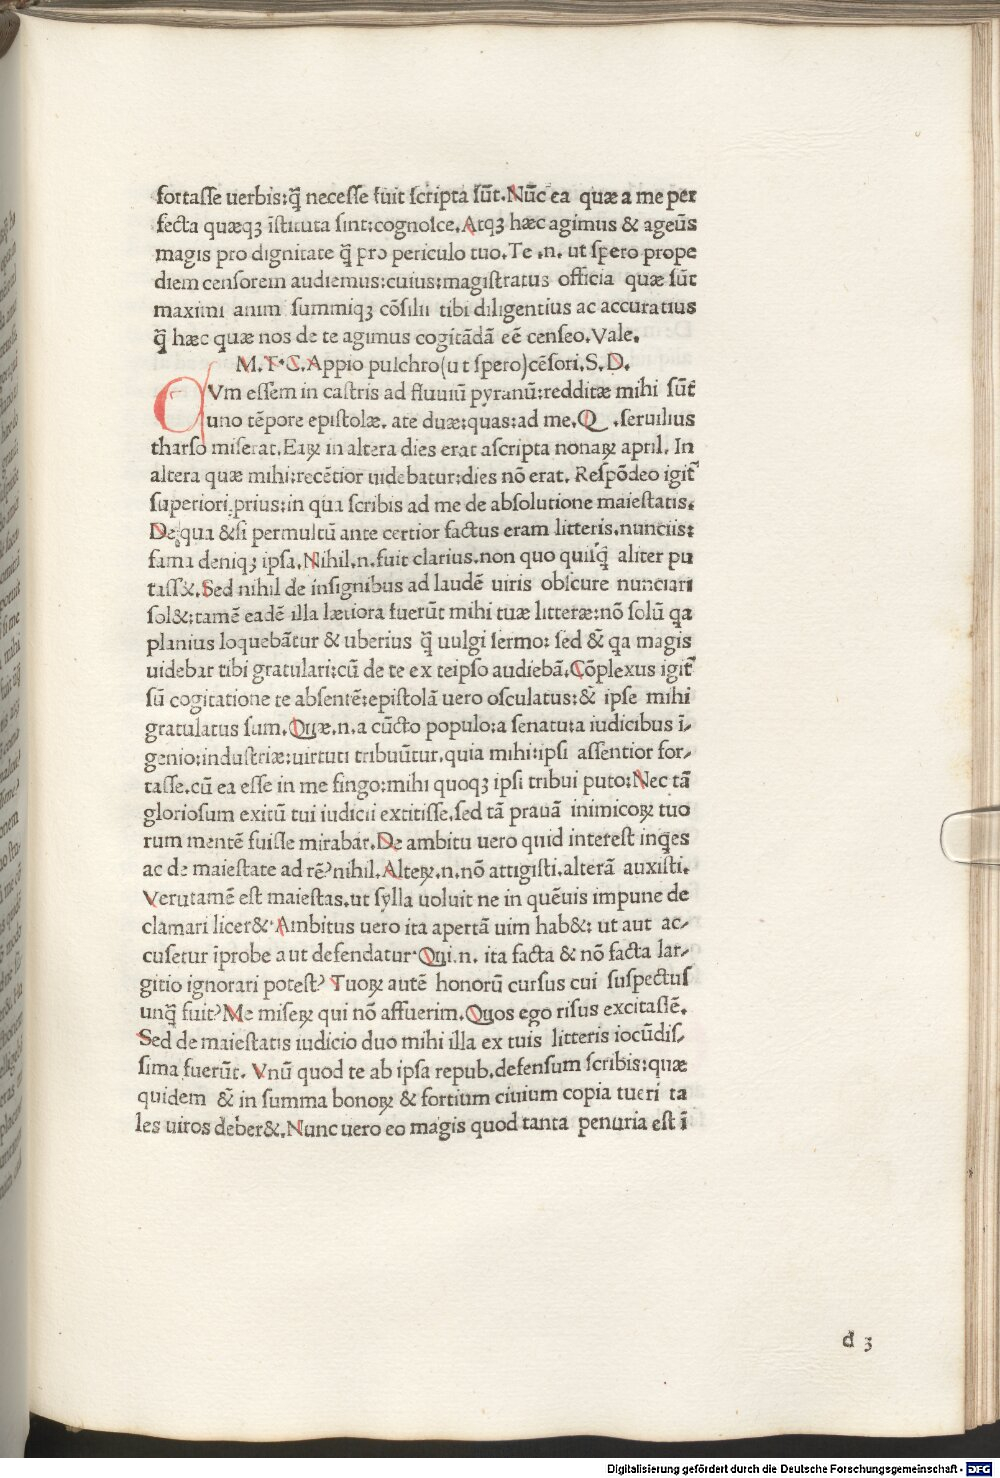 fortasse uerbis:q̃ necesse fuit scripta sūt.Nūc ea quæ a me per
fecta quæqꝫ īstituta sint:cognosce.Atqꝫ hæc agimus & ageūs
magis pro dignitate q̃ pro periculo tuo.Te .n. ut spero prope
diem censorem audiemus:cuius:magistratus officia quæ sūt
maximi animi summiqꝫ cōsilii tibi diligentius ac accuratius
q̃ hæc quæ nos de te agimus cogitādā eē censeo.Vale.
M.T.C.Appio pulchro(ut spero)cēsori.S.D.
CVm essem in castris ad fluuiū pyranū:redditæ mihi sūt
uno tēpore epistolæ. ate duæ:quas:ad me.Q .seruilius
tharso miserat.Eaꝝ in altera dies erat ascripta nonaꝝ april. In
altera quæ mihi:recētior uidebatur:dies nō erat. Respōdeo igit᷑
superiori.prius:in qua scribis ad me de absolutione maiestatis.
De qua &si permultū ante certior factus eram litteris.nunciis:
fama deniqꝫ ipsa.Nihil.n.fuit clarius.non quo quisq̃ aliter pu
tass&.Sed nihil de insignibus ad laudē uiris obscure nunciari
sol&:tamē eadē illa lætiora fuerūt mihi tuæ litteræ:nō solū qa
planius loquebātur & uberius q̃ uulgi sermo: sed &̃ qa magis
uidebar tibi gratulari:cū de te ex teipso audiebā.Cōplexus igit᷑
sū cogitatione te absentē:epistolā uero osculatus:&̃ ipse mihi
gratulatus sum.Quæ.n.a cūcto populo:a senatu:a iudicibus ī-
genio:industriæ:uirtuti tribuūtur.quia mihi:ipsi assentior for-
tasse.cū ea esse in me fingo:mihi quoqꝫ ipsi tribui puto:Nec tā
gloriosum exitū tui iudicii extitisse.sed tā prauā inimicoꝝ tuo
rum mentē fuisse mirabar.De ambitu uero quid interest inqes
ac de maiestate ad rē?nihil.Alteꝝ.n.nō attigisti.alterā auxisti.
Verutamē est maiestas.ut sylla uoluit ne in quēuis impune de
clamari licer&.Ambitus uero ita apertā uim hab&: ut aut ac-
cusetur iprobe aut defendatur.Qui.n. ita facta & nō facta lar-
gitio ignorari potest? Tuoꝝ autē honorū cursus cui suspectus
unq̃ fuit?Me miseꝝ qui nō affuerim.Quos ego risus excitassē.
Sed de maiestatis iudicio duo mihi illa ex tuis litteris iocūdis-
sima fuerūt. Vnū quod te ab ipsa repub.defensum scribis:quæ
quidem &̃ in summa bonoꝝ & fortium ciuium copia tueri ta
les uiros deber&.Nunc uero eo magis quod tanta penuria est ī
d 3
Digitalisierung gefördert durch die Deutsche Forschungsgemeinschaft - DFG